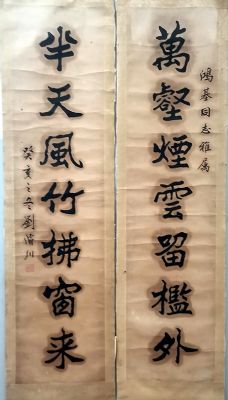 鴻基同志雅属
萬壑煙雲留檻外
半天風竹拂窗来
癸亥之冬劉濟川